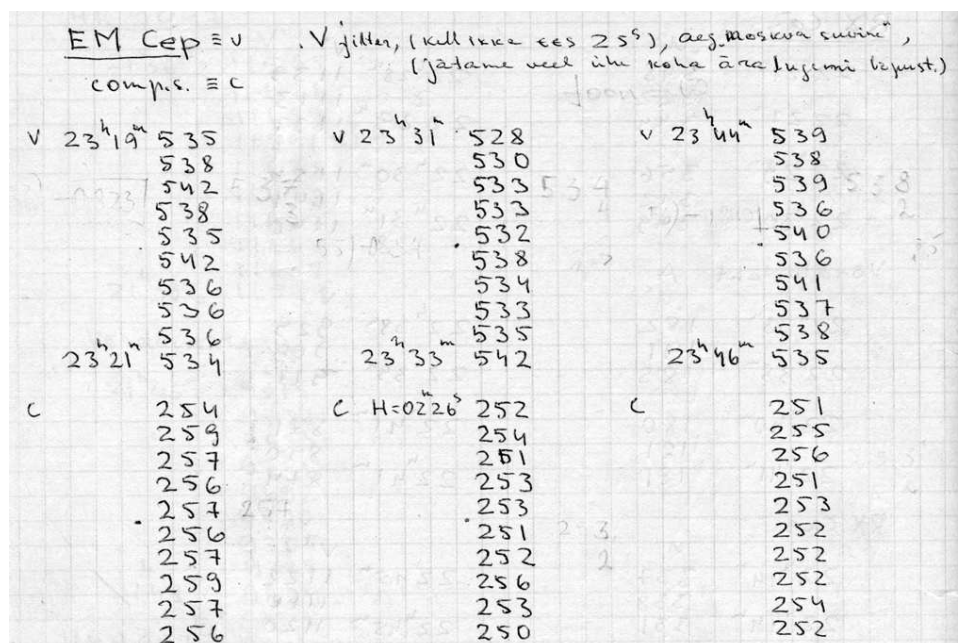 EM Cep ≡ v . V filter, (kell ikka ees 25ˢ), aeg Moskva suvine,
comp.s. ≡ c (jätame veel ühe koha ära lugemi lõpust.)
V 23ʰ19ᵐ 535
538
542
538
535
542
536
536
536
23ʰ21ᵐ 534
C 254
259
257
256
257
256
257
259
257
256
V 23ʰ31ᵐ 528
530
533
533
532
538
534
533
535
23ʰ33ᵐ 542
C H=02ᵐ26ˢ 252
254
251
253
253
251
252
256
253
250
V 23ʰ44ᵐ 539
538
539
536
540
536
541
537
538
23ʰ46ᵐ 535
C 251
255
256
251
253
252
252
252
254
252